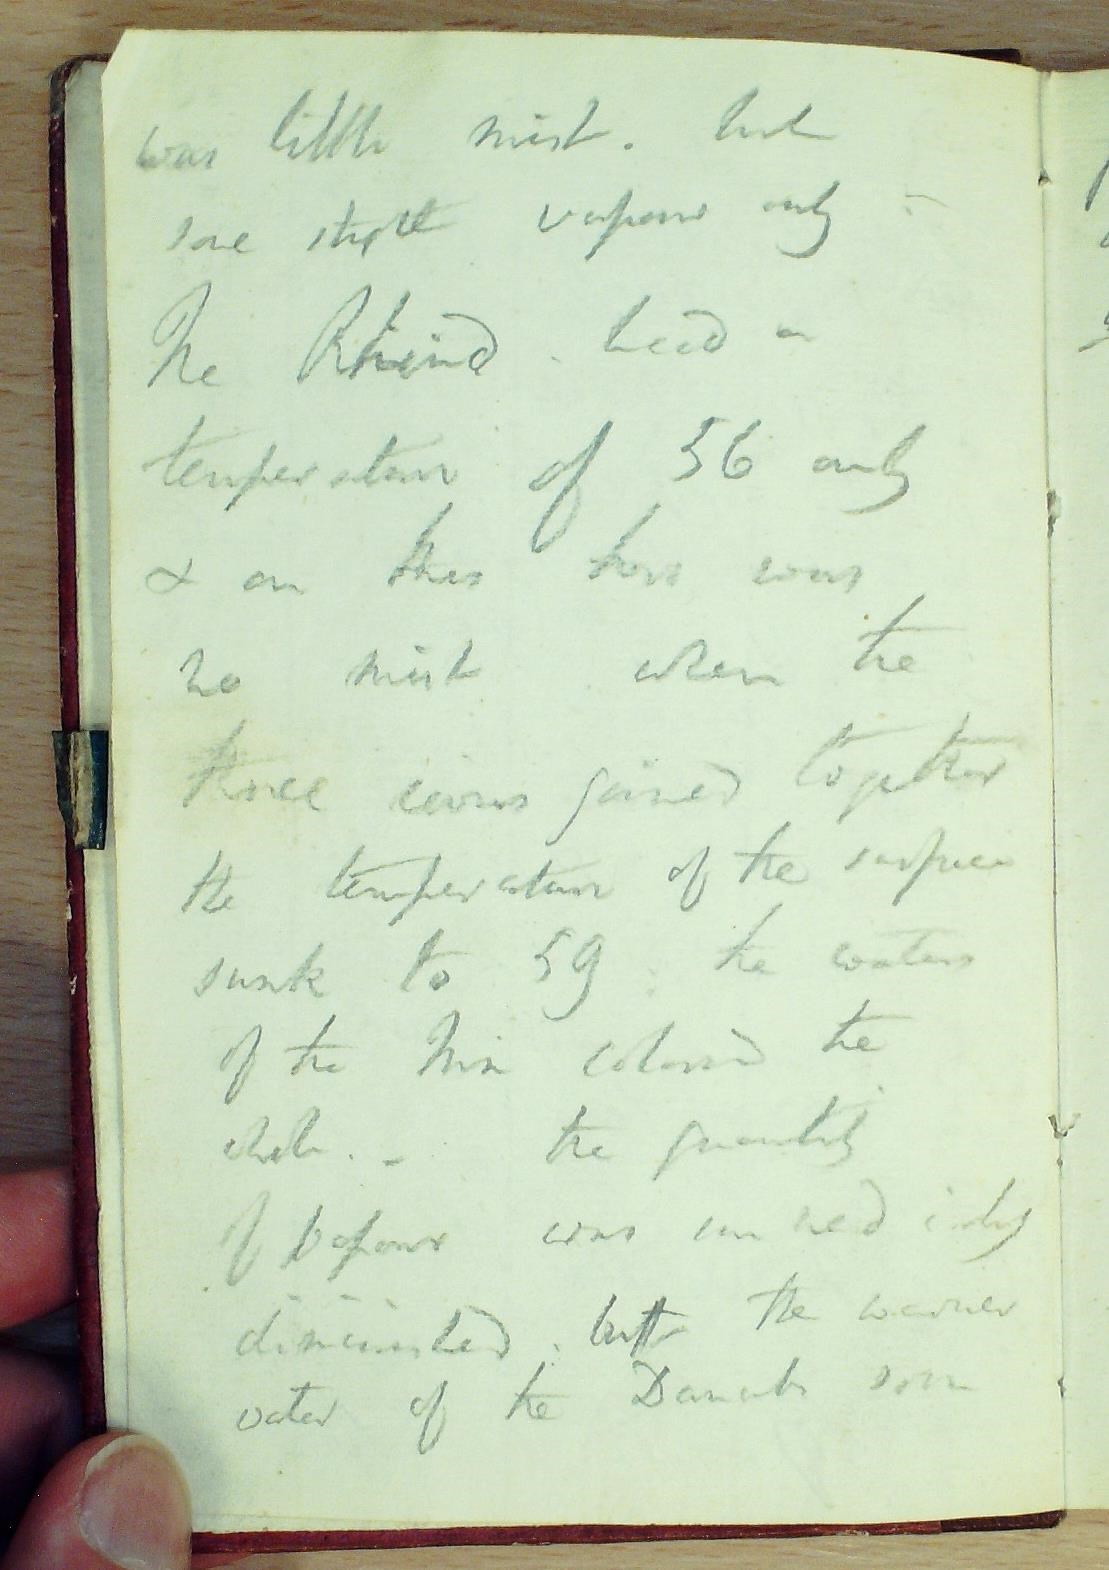 was little mist. but
some slight vapour only -
The Rhine . had a
temperature of 56 only
& on this there was
no mist when the
three rivers joined together
the temperature of the surface
sunk to 59 . the waters
of the Inn colored the
whole . - the quantity
of vapour was immediately
diminished . but the warmer
water of the Danube soon